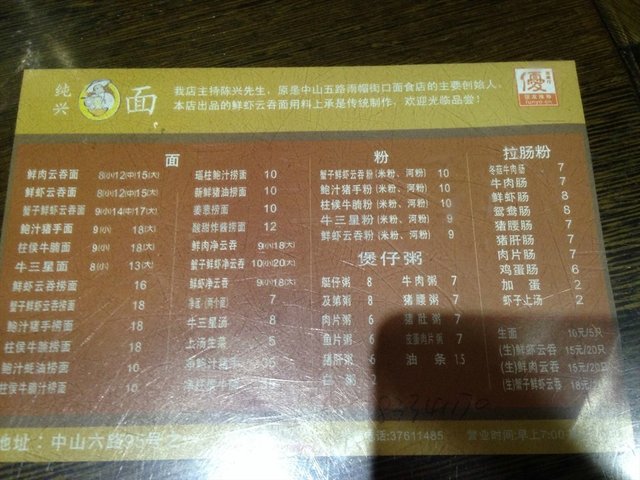 纯兴面
我店主持陈兴先生，原是中山五路雨帽街口面食店的主要创始人，
本店出品的鲜虾云吞面用料上承是传统制作，欢迎光临品尝！
優
面
鲜肉云吞面 8(小)12(中)15(大)
鲜虾云吞面 8(小)12(中)15(大)
蟹子鲜虾云吞面 9(小)14(中)17(大)
鲍汁猪手面 9(小) 18(大)
柱侯牛腩面 9(小) 18(大)
牛三星面 8(小) 13(大)
鲜虾云吞捞面 16
蟹子鲜虾云吞捞面 18
鲍汁猪手捞面 18
柱侯牛腩捞面 18
鲍汁蚝油捞面 10
柱侯牛腩汁捞面 10
瑶柱鲍汁捞面 10
新鲜猪油捞面 10
姜葱捞面 10
酸甜炸酱捞面 12
鲜肉净云吞 9(小)18(大)
蟹子鲜虾净云吞 10(小)20(大)
鲜虾净云吞 9(小)18(大)
净面 7
牛三星汤 8
上汤生菜 5
粉
蟹子鲜虾云吞粉(米粉、河粉) 10
鲍汁猪手粉(米粉、河粉) 10
柱侯牛腩粉(米粉、河粉) 10
牛三星粉(米粉、河粉) 9
鲜虾云吞粉(米粉、河粉) 9
煲仔粥
艇仔粥 8
及第粥 8
肉片粥 6
鱼片粥 6
猪肝粥 6
白粥 2
牛肉粥 7
猪腰粥 7
猪肚粥 7
皮蛋肉片粥 7
油条 1.5
拉肠粉
冬菇牛肉肠 7
牛肉肠 7
鲜虾肠 8
鸳鸯肠 8
猪腰肠 7
猪肝肠 7
肉片肠 7
鸡蛋肠 6
加蛋 2
虾子上汤 2
生面 10元/5只
(生)鲜虾云吞 15元/20只
(生)鲜肉云吞 15元/20只
(生)蟹子鲜虾云吞 18元
地址：中山六路
电话:37611485
营业时间:早上7:00